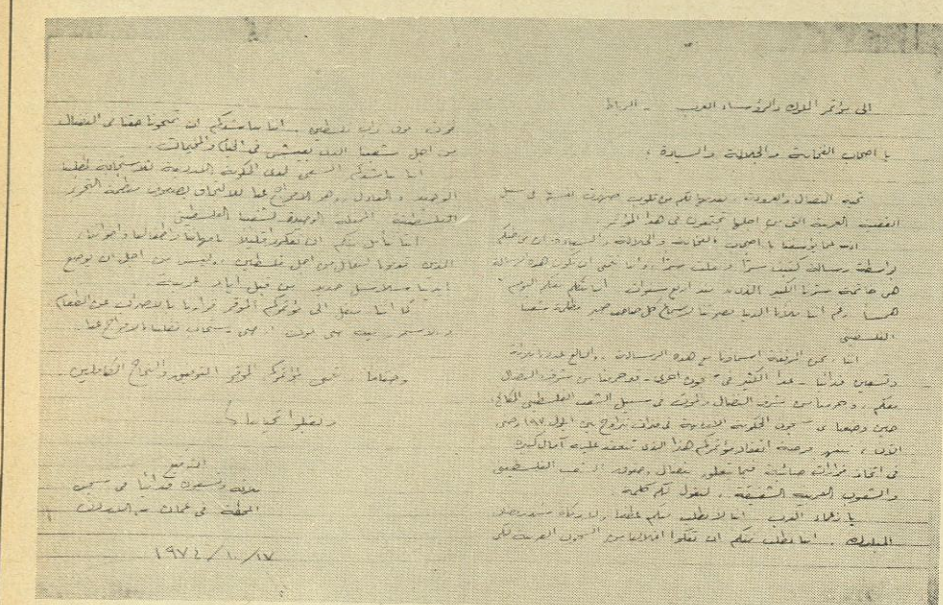 الى مؤتمر الملوك والرؤساء العرب - الرباط
يا اصحاب الفخامة والجلالة والسيادة ؛
تحية النضال والعودة . نقدمها لكم من قلوب صهرت نفسها في سبيل
القضية العربية التي من اجلها تجتمعون في هذا المؤتمر
انه لمما يؤسفنا يا اصحاب الفخامة والجلالة والسيادة ان نخاطبكم
بواسطة رسالة كتبت سراً ونقلت سراً . واننا نتمنى ان تكون هذه الرسالة
هي خاتمة سرنا الكبير الذي منذ اربع سنوات اننا نكلمكم اليوم
همساً رغم اننا ملأنا الدنيا
الفلسطيني
اننا نحن المرفقة اسماؤنا مع هذه الرسالة . والبالغ عددنا ثلاثة
وتسعين فدائيا - عدا الكثير في سجون اخرى - قد حرمنا من شرف النضال
معكم . وحرمنا من شرف النضال والموت في سبيل الشعب الفلسطيني المكافح
حين وضعنا في سجون الحكومة الاردنية في فترات تتراوح بين ايلول ١٩٧٠ وحتى
الآن ، ننتهز فرصة انعقاد مؤتمركم هذا الذي تنعقد عليه آمال كبيرة
في اتخاذ قرارات حاسمة فيما يتعلق بنضال وحقوق الشعب الفلسطيني
والشعوب العربية الشقيقة . لنقول لكم كلمة
يا زعماء العرب . اننا لا نطلب منكم عطفا ولا زكاة
. اننا نطلب منكم ان تفكوا اغلالنا من السجون العربية لكي
نموت فوق تراب فلسطين . اننا نناشدكم ان تمنحونا حقنا في النضال
من اجل شعبنا الذي يعيش في الخيام والمخيمات .
اننا نناشدكم السعي لدى الحكومة الاردنية للاستجابة لطلبنا
الوحيد والعادل . وهو الافراج عنا للالتحاق بصفوف منظمة التحرير
الفلسطينية الممثلة الوحيدة لشعبنا الفلسطيني
اننا نأمل منكم ان تفكروا قليلا بامهاتنا واطفالنا واخواتنا
الذين قدمونا لنناضل من اجل فلسطين . وليس من اجل ان توضع
ايدينا بسلاسل حديد من قبل اياد عربية
كما اننا ننقل الى مؤتمركم الموقر قرارنا بالاضراب عن الطعام
حتى الموت او حتى يستجاب طلبنا بالافراج عنا .
وختاما . نتمنى لمؤتمركم الموقر التوفيق والنجاح الكاملين .
وتقبلوا تحياتنا
التوقيع
ثلاثة وتسعون فدائيا في سجن
المحطة في عمان
١٩٧٤/١٠/١٧